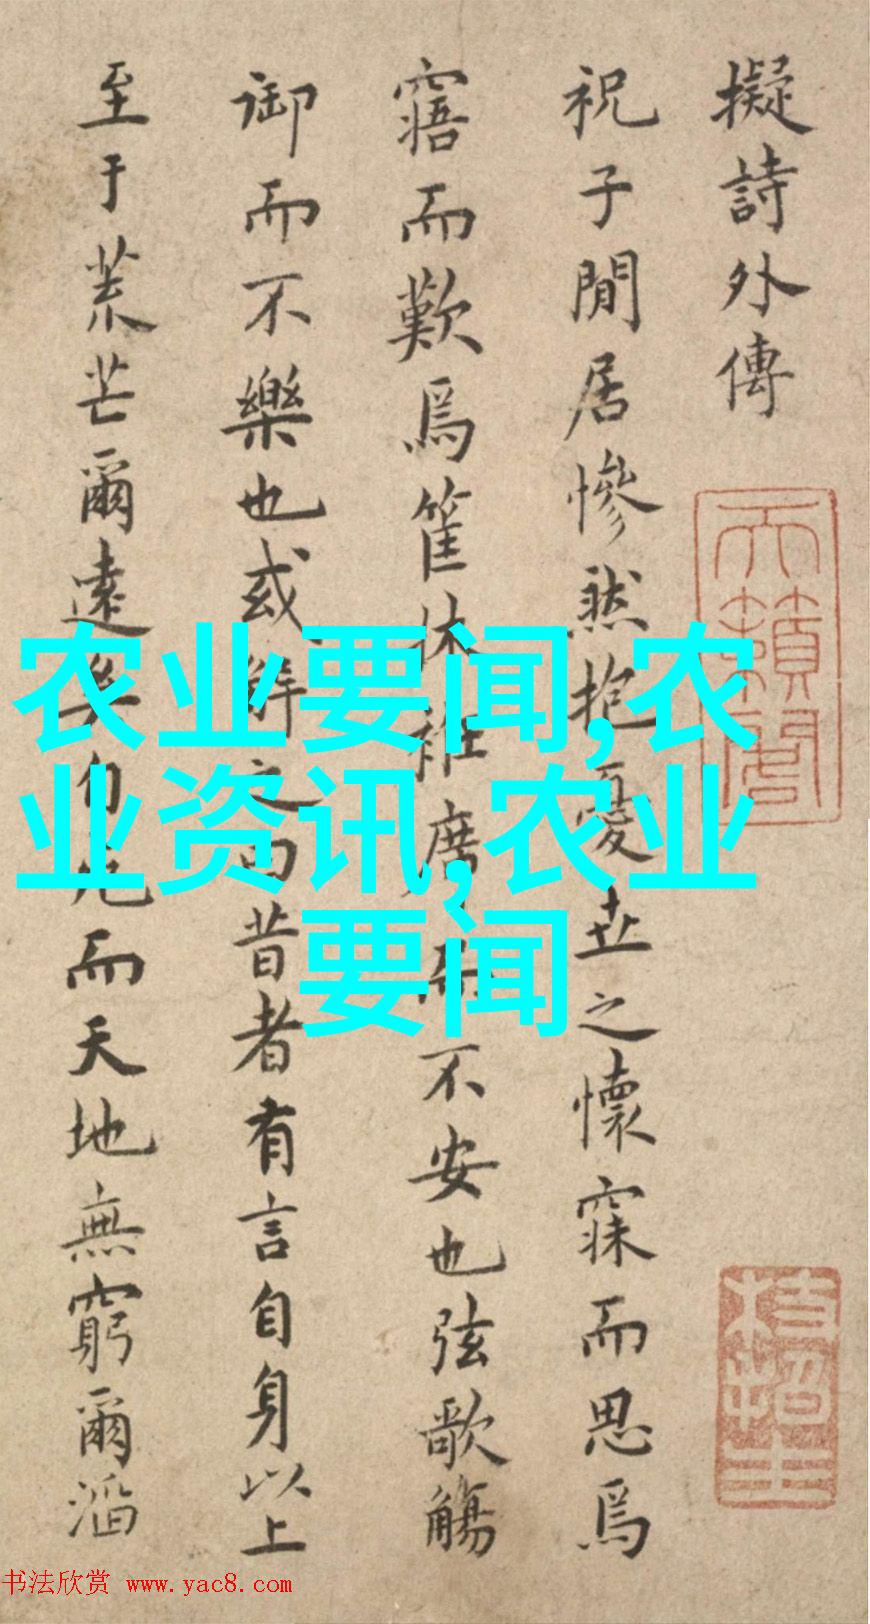 擬詩外傳
祝子閒居慘然抱憂世之懷寐而思焉
寤而歎焉筐休不安也弦歌觴
御而不樂也或解之曰昔者有言自身以上
至于荒芒爾遠矣自而天地無窮爾滔
天籟閣
农业要闻,农
业资讯,农业
要闻
书法欣赏 www.yac8.com